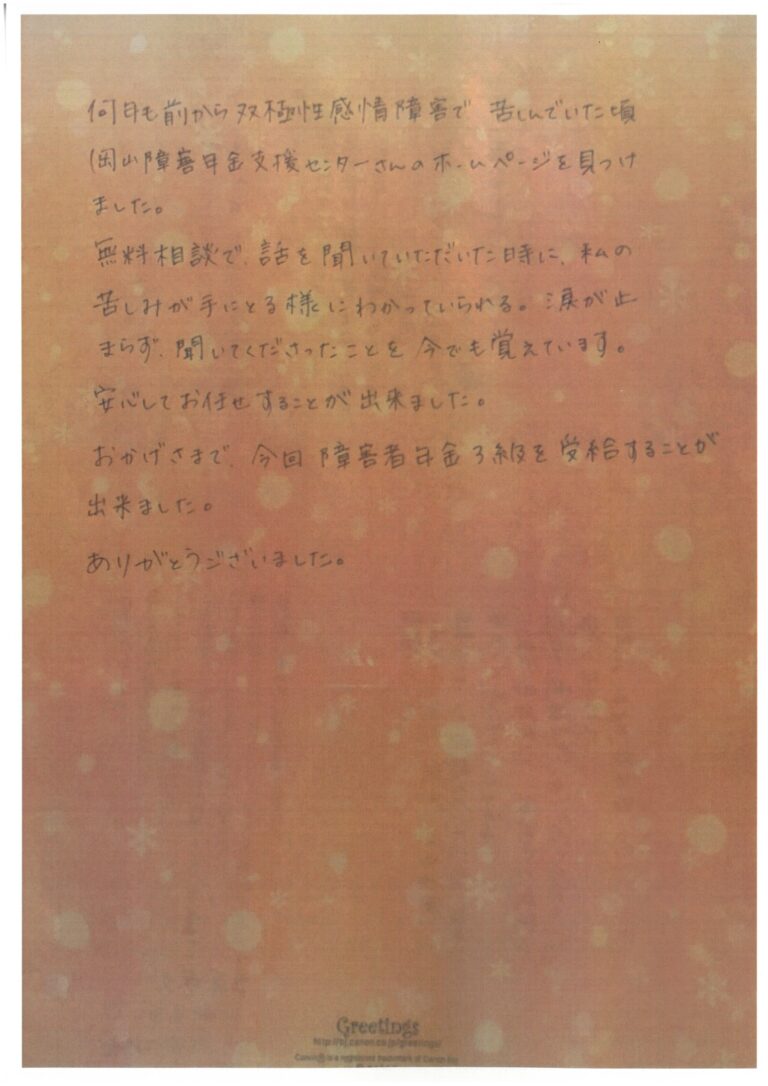 何年も前から双極性感情障害で 苦しんでいた頃
岡山障害年金支援センターさんのホームページを見つけ
ました。
無料相談で、話を聞いていただいた時に、私の
苦しみが手にとる様にわかっていられる。涙が止
まらず、聞いてくださったことを今でも覚えています。
安心してお任せすることが出来ました。
おかげさまで、今回 障害者年金3級を受給することが
出来ました。
ありがとうございました。
Greetings
http://bj.canon.co.jp/greetings/
Canon® is a registered trademark of Canon Inc.